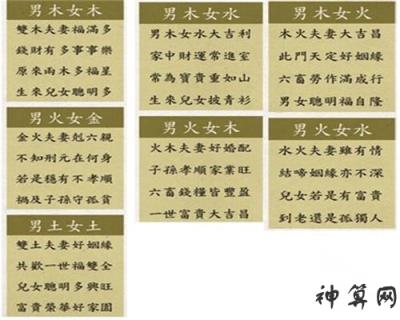 男木女木
雙木夫妻福滿多
錢財有多事事樂
原來兩木多福星
生來兒女聰明多
男木女水
男木女水大吉利
家中財運常進室
常為寶貴重如山
生來兒女披青衫
男木女火
木火夫妻大吉昌
此門天定好姻緣
六畜勞作滿成行
男女聰明福自隆
男火女金
金火夫妻剋六親
不知刑元在何身
若是穩有不孝順
禍及子孫守孤貧
男火女木
火木夫妻好婚配
子孫孝順家業旺
六畜錢糧皆豐盈
一世富貴大吉昌
男火女水
水火夫妻雖有情
結啼姻緣亦不深
兒女若是有富貴
到老還是孤獨人
男土女土
雙土夫妻好姻緣
共歡一世福雙全
兒女聰明多興旺
富貴榮華好家園
神算网